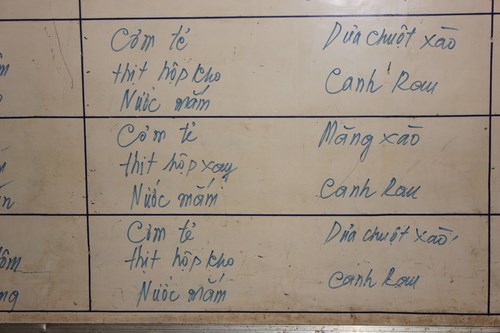 Cơm tẻ Dưa chuột xào
thịt hộp kho Canh Rau
Nước mắm
Cơm tẻ Măng xào
thịt hộp xay
Nước mắm Canh Rau
Cơm tẻ Dưa chuột xào
thịt hộp kho
Nước mắm Canh Rau